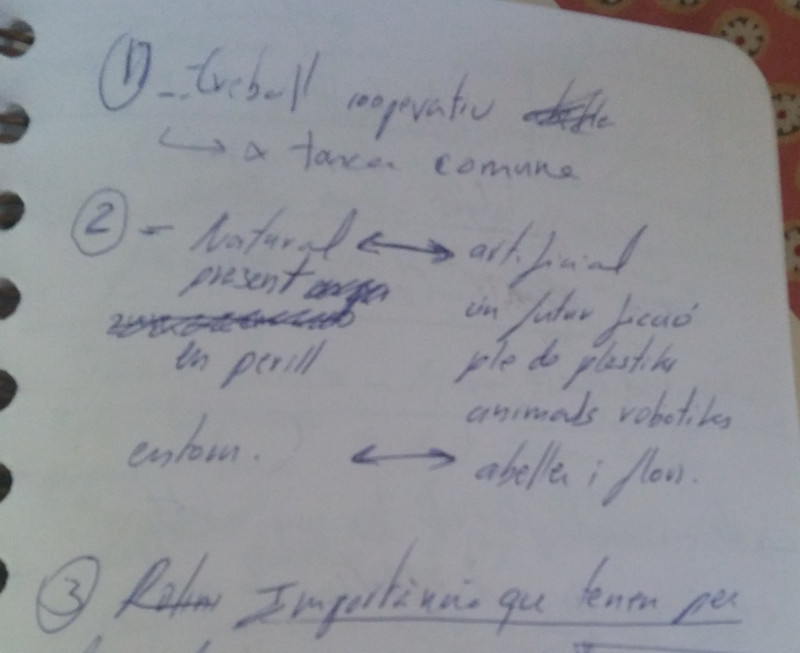 1) - treball cooperatiu
↳ a tasca comuna
2 - Natural ↔ artificial
present
un futur ficció
en perill
ple de plastiks
animals robotiks
entorn. ↔ abelles i flors.
3 Importància que tenen per